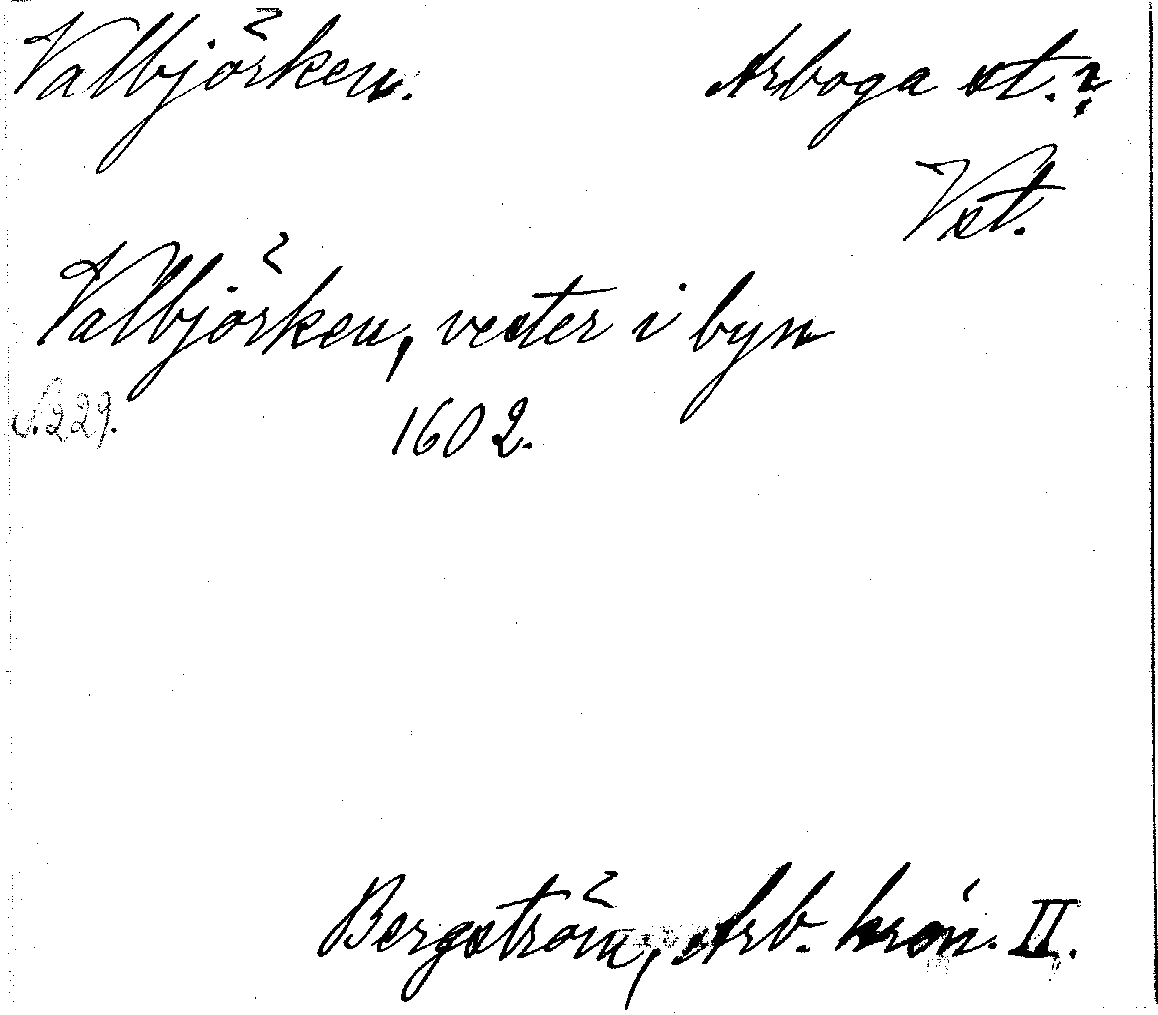 Valbjörken. Arboga st.?
Vst.
Valbjörken, vester i byn
S. 229. 1602.
Bergström, Arb. krön. II.